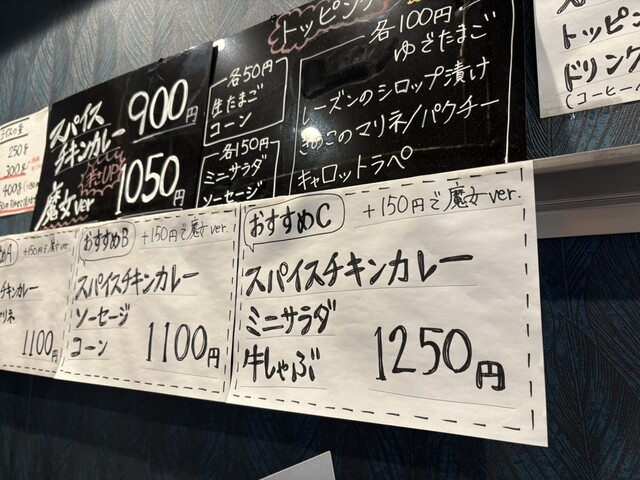 スパイス
チキンカレー
900円
辛さUP!
魔女ver
1050円
トッピング
各50円
生たまご
コーン
各150円
ミニサラダ
ソーセージ
各100円
ゆでたまご
レーズンのシロップ漬け
きのこのマリネ/パクチー
キャロットラペ
トッピン
ドリンク
(コーヒー
250g
300g
400g
+150円で魔女ver.
チキンカレー
マリネ
1100円
おすすめB
+150円で魔女ver.
スパイスチキンカレー
ソーセージ
コーン
1100円
おすすめC
+150円で魔女ver.
スパイスチキンカレー
ミニサラダ
牛しゃぶ
1250円